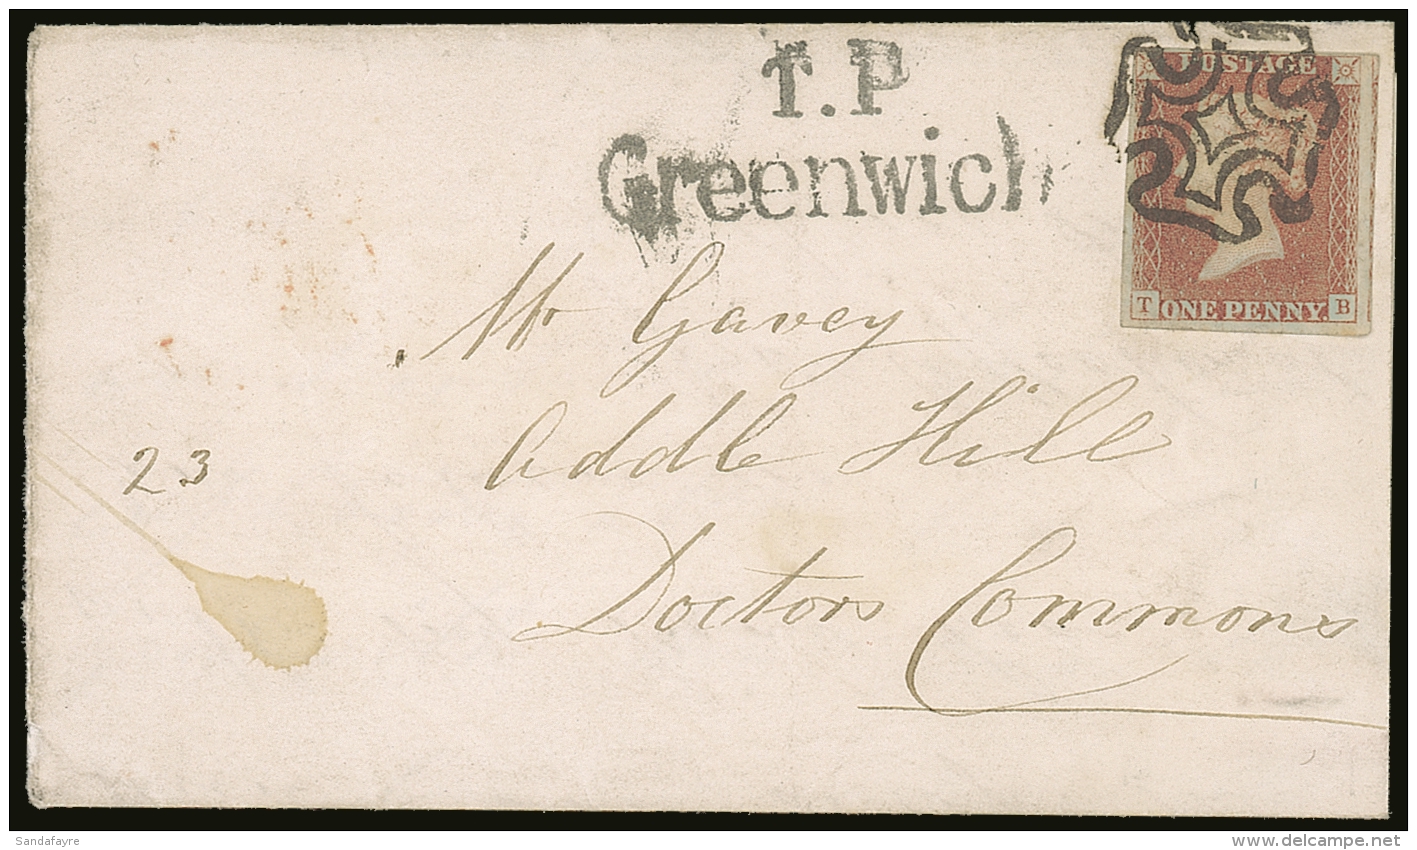 T.P
Greenwich
POSTAGE
T ONE PENNY. B
Mr Gavey
Addle Hill
23
Doctors Commons
Sandafayre
www.delcampe.net